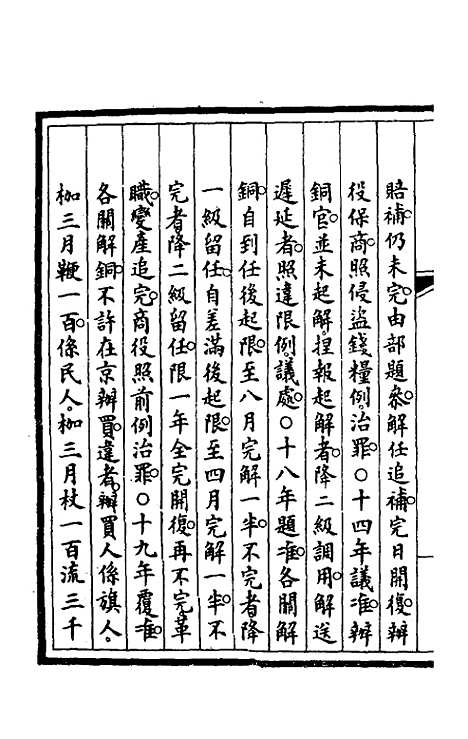 賠補。仍未完。由部題叅。解任追補。完日開復。辦
役保商。照侵盜錢糧例。治罪。○十四年議准。辦
銅官並未起解。捏報起解者。降二級調用。解送
遲延者。照違限例。議處。○十八年題准。各關解
銅。自到任後起限。至八月完解一半。不完者。降
一級留任。自差滿後起限。至四月完解一半。不
完者。降二級留任。限一年全完開復。再不完。革
職。變產追完。商役照前例治罪。○十九年覆准。
各關解銅。不許在京辦買。違者。辦買人係旗人。
枷三月鞭一百。係民人。枷三月杖一百流三千